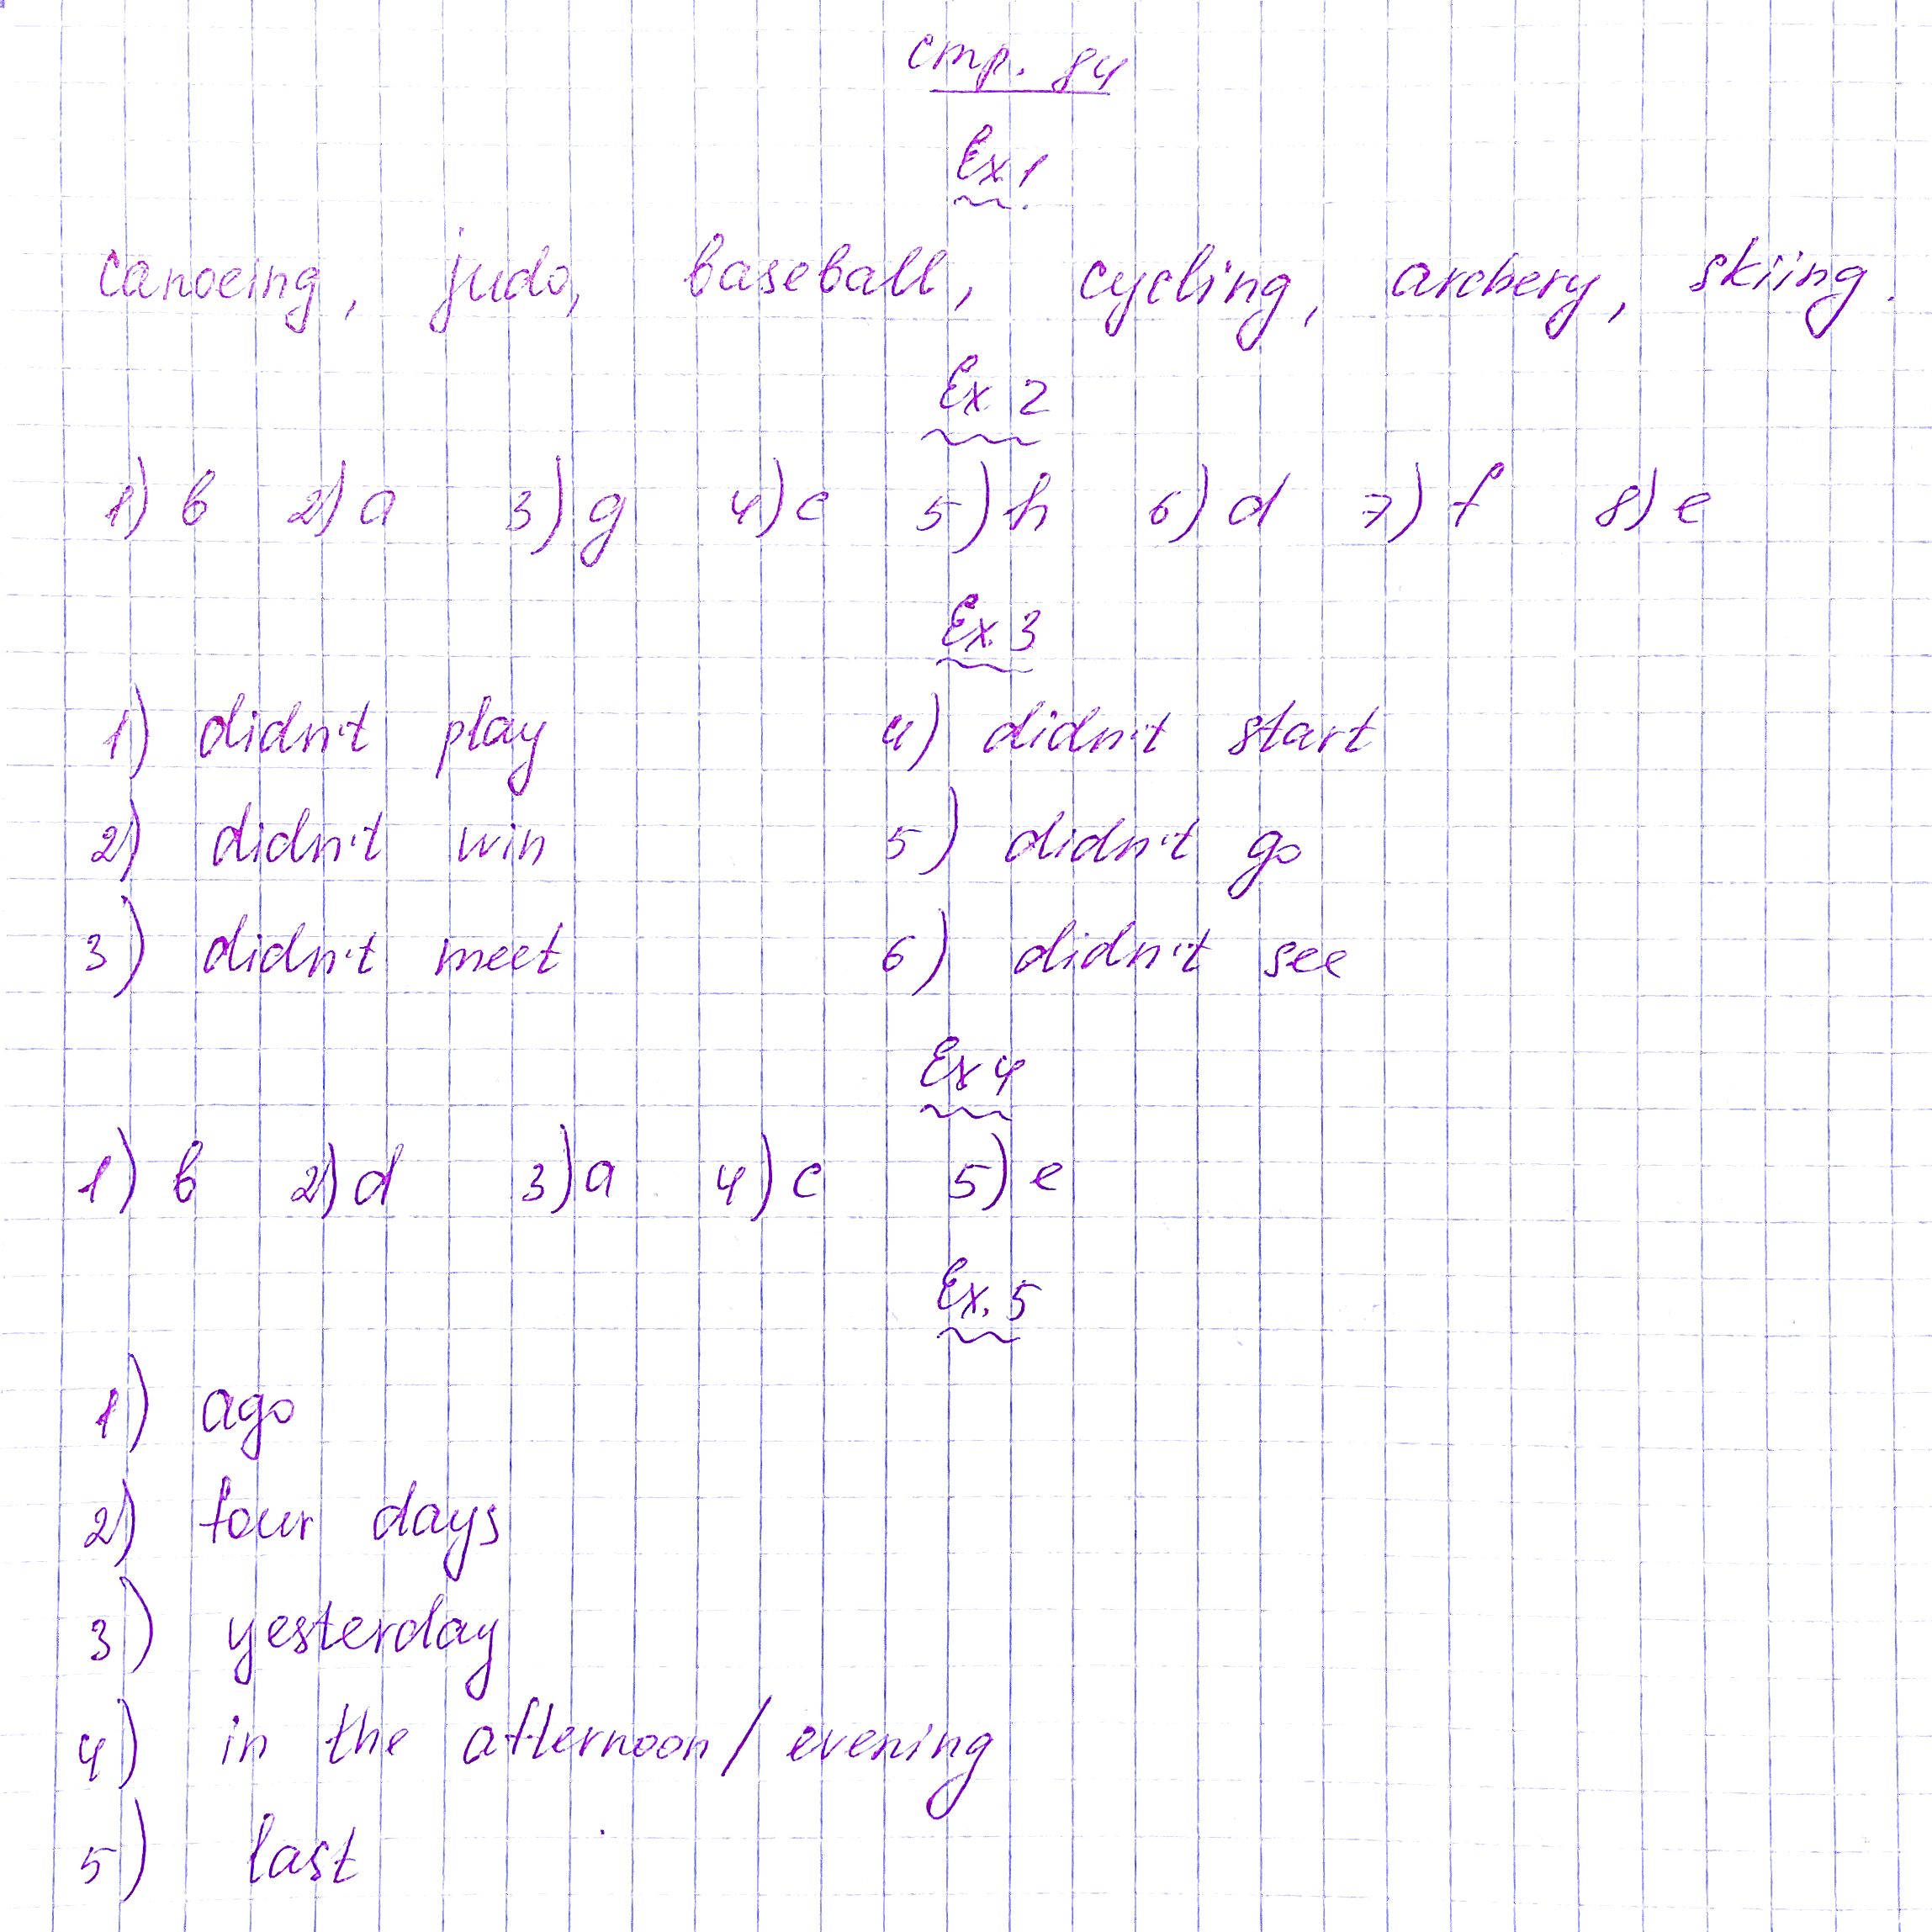 стр. 84
Ex 1
canoeing, judo, baseball, cycling, archery, skiing.
Ex 2
1) b 2) a 3) g 4) c 5) h 6) d 7) f 8) e
Ex. 3
1) didn't play 4) didn't start
2) didn't win 5) didn't go
3) didn't meet 6) didn't see
Ex 4
1) b 2) d 3) a 4) c 5) e
Ex. 5
1) ago
2) four days
3) yesterday
4) in the afternoon / evening
5) last